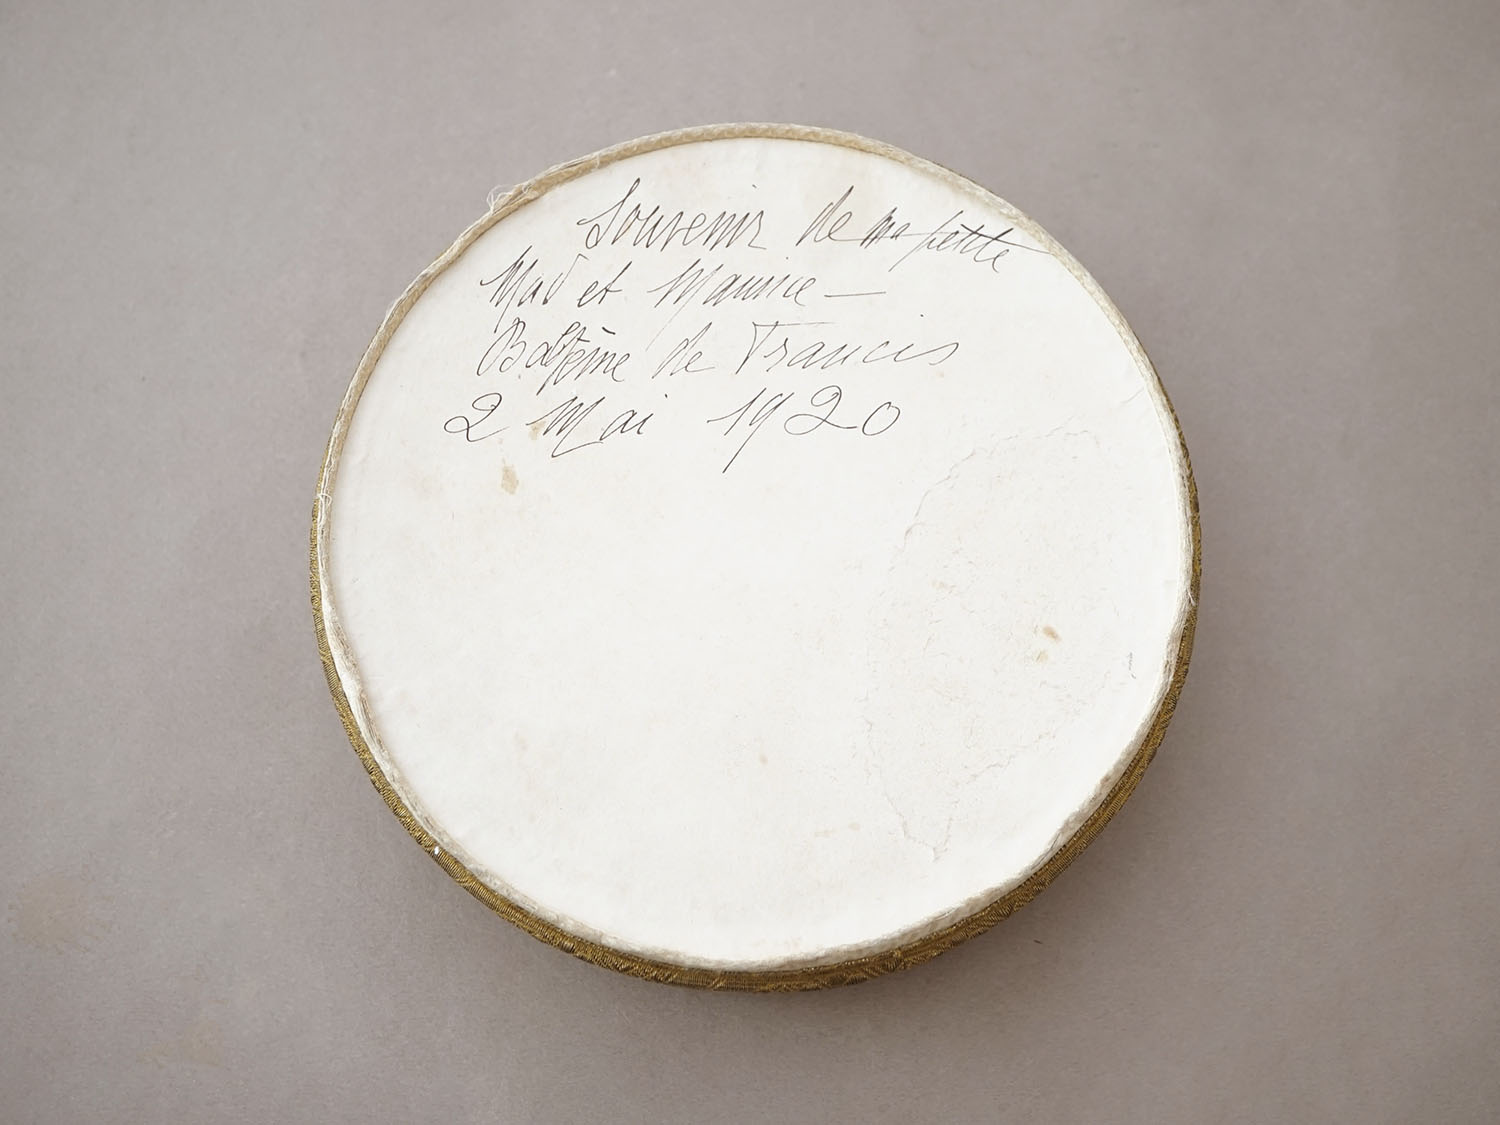 Souvenir de ma petite
Mad et Maurice –
Baptême de Francis
2 Mai 1920